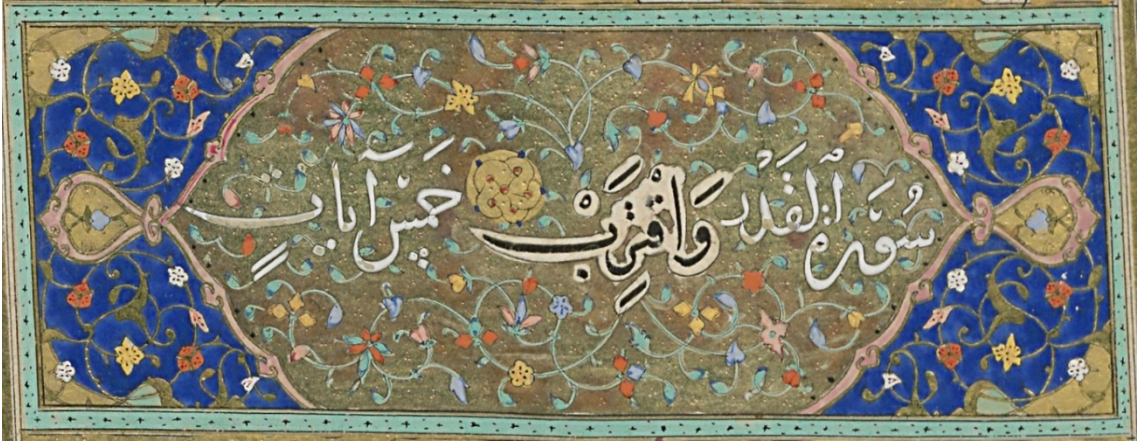 سورة القدر وَاقْتَرِبْ خَمْسُ آيَاتٍ